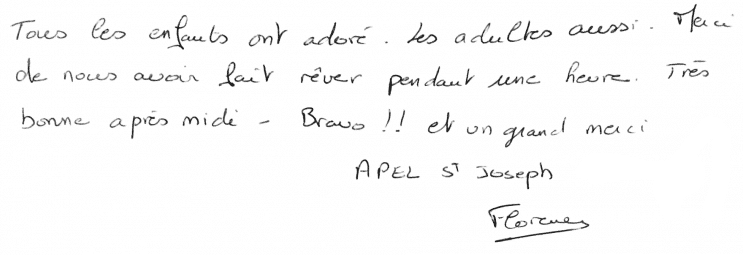 Tous les enfants ont adoré. Les adultes aussi. Merci
de nous avoir fait rêver pendant une heure. Très
bonne après midi - Bravo !! et un grand merci
APEL ST Joseph
Florence